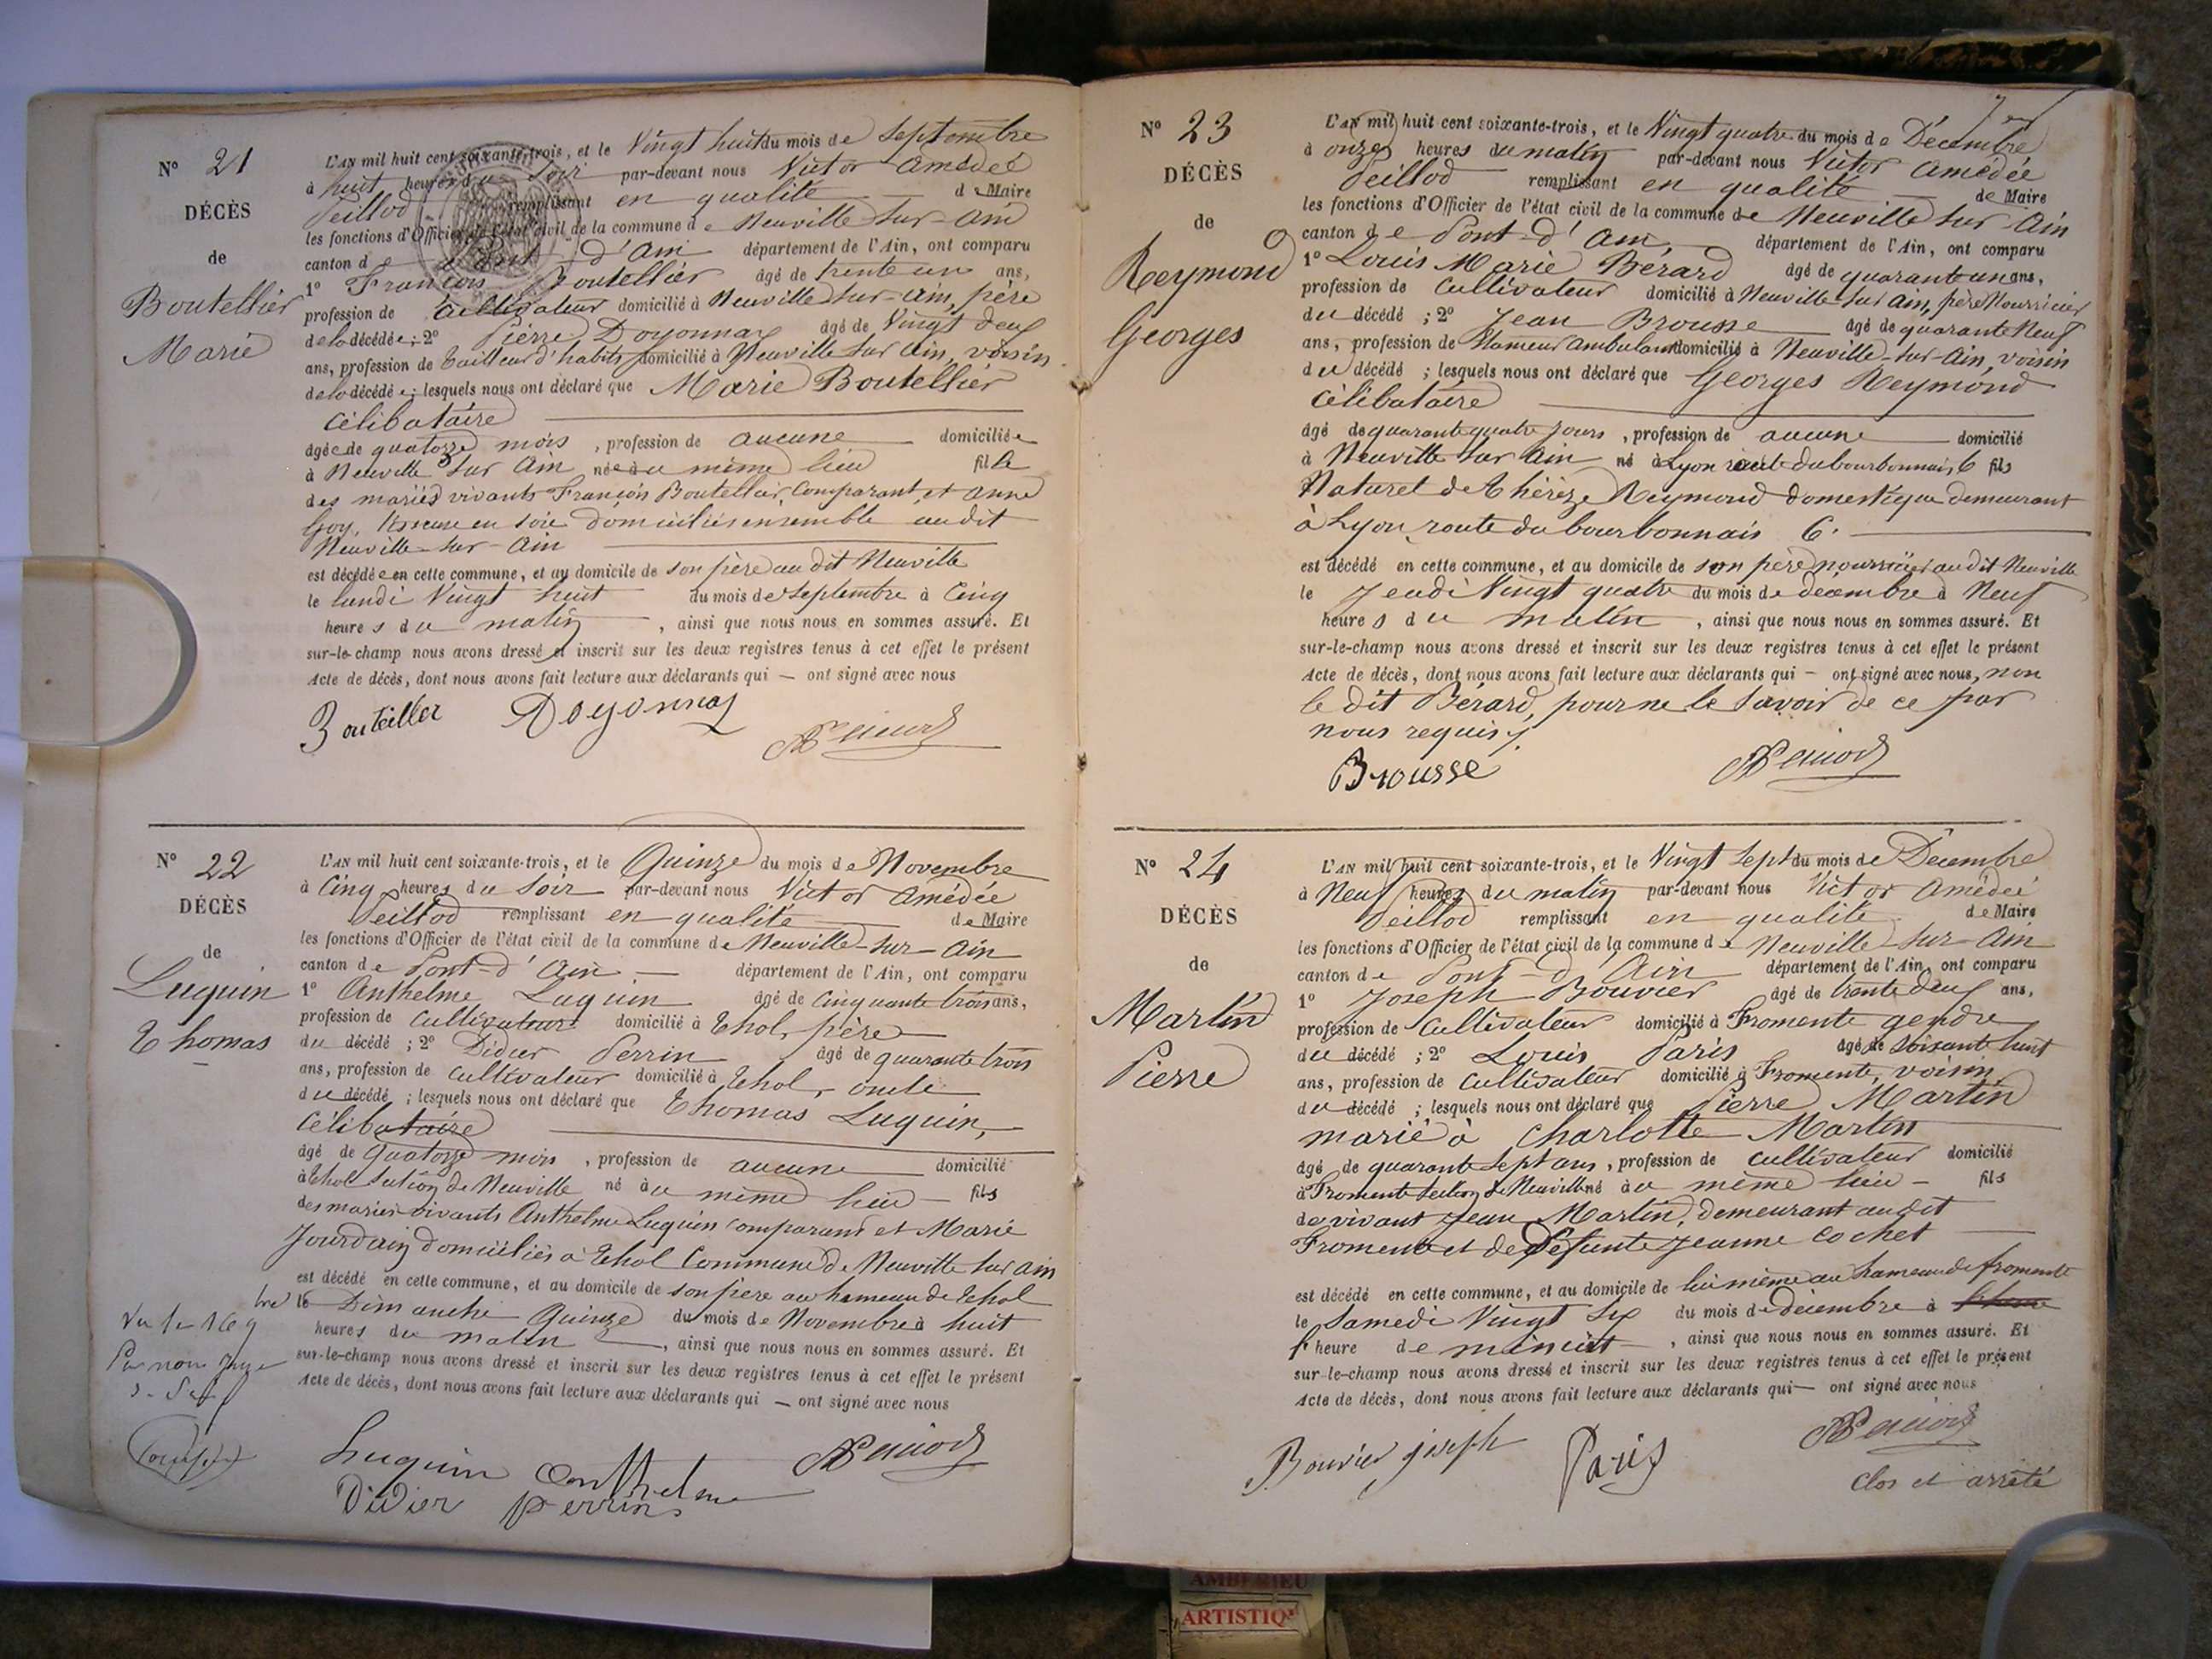 N° 21
DÉCÈS
de
Boutellier
Marie
L'AN mil huit cent soixante-trois, et le Vingt huit du mois de Septembre
à huit heures du Soir par-devant nous Victor Amédée
Peillod remplissant en qualité de Maire
les fonctions d'Officier de l'état civil de la commune de Neuville sur Ain
canton de Pont d'Ain département de l'Ain, ont comparu
1° François Boutellier âgé de trente un ans,
profession de Cultivateur domicilié à Neuville sur-Ain, père
de la décédée; 2° Pierre Doyonnax âgé de Vingt deux
ans, profession de tailleur d'habits domicilié à Neuville sur Ain, voisin
de la décédée; lesquels nous ont déclaré que Marie Boutellier
Célibataire
âgée de quatorze mois, profession de aucune domiciliée
à Neuville sur Ain née au même lieu fille
des mariés vivants François Boutellier, Comparant, et Anne
Goy, tisseuse en soie domiciliés ensemble au dit
Neuville-sur-Ain
est décédée en cette commune, et au domicile de son père au dit Neuville
le lundi Vingt huit du mois de Septembre à Cinq
heures du matin, ainsi que nous nous en sommes assuré. Et
sur-le-champ nous avons dressé et inscrit sur les deux registres tenus à cet effet le présent
Acte de décès, dont nous avons fait lecture aux déclarants qui — ont signé avec nous
Bouteiller Doyonnax
N° 22
DÉCÈS
de
Luquin
Thomas
L'AN mil huit cent soixante-trois, et le Quinze du mois de Novembre
à Cinq heures du Soir par-devant nous Victor Amédée
Peillod remplissant en qualité de Maire
les fonctions d'Officier de l'état civil de la commune de Neuville-sur-Ain
canton de Pont-d'Ain département de l'Ain, ont comparu
1° Anthelme Luquin âgé de Cinquante trois ans,
profession de Cultivateur domicilié à Thol, père
du décédé; 2° Didier Perrin âgé de quarante trois
ans, profession de Cultivateur domicilié à Thol, oncle
du décédé; lesquels nous ont déclaré que Thomas Luquin,
Célibataire
âgé de Quatorze mois, profession de aucune domicilié
à Thol Section de Neuville né au même lieu fils
des mariés vivants Anthelme Luquin comparant et Marie
Jourdain domiciliés à Thol Commune de Neuville sur Ain
est décédé en cette commune, et au domicile de son père au hameau de Thol
le Dimanche Quinze du mois de Novembre à huit
heures du matin, ainsi que nous nous en sommes assuré. Et
sur-le-champ nous avons dressé et inscrit sur les deux registres tenus à cet effet le présent
Acte de décès, dont nous avons fait lecture aux déclarants qui — ont signé avec nous
Luquin Anthelme
Didier Perrin
N° 23
DÉCÈS
de
Reymond
Georges
L'AN mil huit cent soixante-trois, et le Vingt quatre du mois de Décembre
à onze heures du matin par-devant nous Victor Amédée
Peillod remplissant en qualité de Maire
les fonctions d'Officier de l'état civil de la commune de Neuville sur Ain
canton de Pont-d'Ain, département de l'Ain, ont comparu
1° Louis Marie Bérard âgé de quarante un ans,
profession de Cultivateur domicilié à Neuville-sur Ain, père Nourricier
du décédé; 2° Jean Brousse âgé de quarante Neuf
ans, profession de étameur ambulant domicilié à Neuville-sur-Ain, voisin
du décédé; lesquels nous ont déclaré que Georges Reymond
Célibataire
âgé de quarante quatre jours, profession de aucune domicilié
à Neuville sur Ain né à Lyon route du bourbonnais, 6 fils
Naturel de Thérèze Reymond domestique demeurant
à Lyon, route du bourbonnais 6.
est décédé en cette commune, et au domicile de son père nourricier au dit Neuville
le Jeudi Vingt quatre du mois de décembre à Neuf
heures du matin, ainsi que nous nous en sommes assuré. Et
sur-le-champ nous avons dressé et inscrit sur les deux registres tenus à cet effet le présent
Acte de décès, dont nous avons fait lecture aux déclarants qui — ont signé avec nous, non
le dit Bérard, pour ne le savoir de ce par
nous requis.
Brousse
N° 24
DÉCÈS
de
Martin
Pierre
L'AN mil huit cent soixante-trois, et le Vingt Sept du mois de Décembre
à Neuf heures du matin par-devant nous Victor Amédée
Peillod remplissant en qualité de Maire
les fonctions d'Officier de l'état civil de la commune de Neuville-sur-Ain
canton de Pont-d'Ain département de l'Ain, ont comparu
1° Joseph Bouvier âgé de trente deux ans,
profession de Cultivateur domicilié à Fromente gendre
du décédé; 2° Louis Paris âgé de soixante huit
ans, profession de Cultivateur domicilié à Fromente, voisin
du décédé; lesquels nous ont déclaré que Pierre Martin
marié à Charlotte Martin
âgé de quarante Sept ans, profession de Cultivateur domicilié
à Fromente Section de Neuville né au même lieu fils
de vivant Jean Martin, demeurant au dit
Fromente et de Défunte Jeanne Cochet
est décédé en cette commune, et au domicile de lui même au hameau de fromente
le Samedi Vingt Six du mois de décembre à
heure de minuit, ainsi que nous nous en sommes assuré. Et
sur-le-champ nous avons dressé et inscrit sur les deux registres tenus à cet effet le présent
Acte de décès, dont nous avons fait lecture aux déclarants qui — ont signé avec nous
Bouvier joseph Paris
Clos et arrêté
AMBERIEU
ARTISTIQ